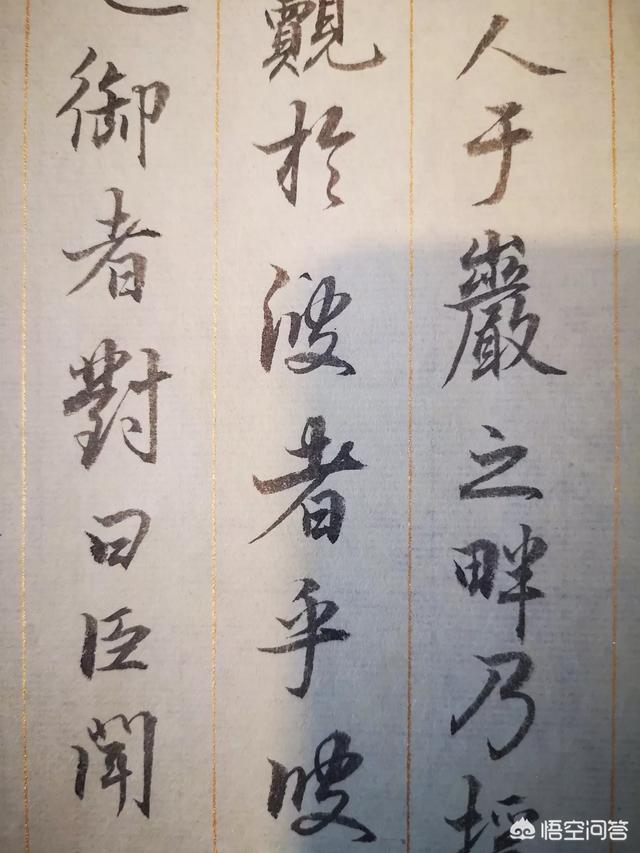 人于巖之畔乃
覿於彼者乎彼
御者對曰臣聞
悟空问答